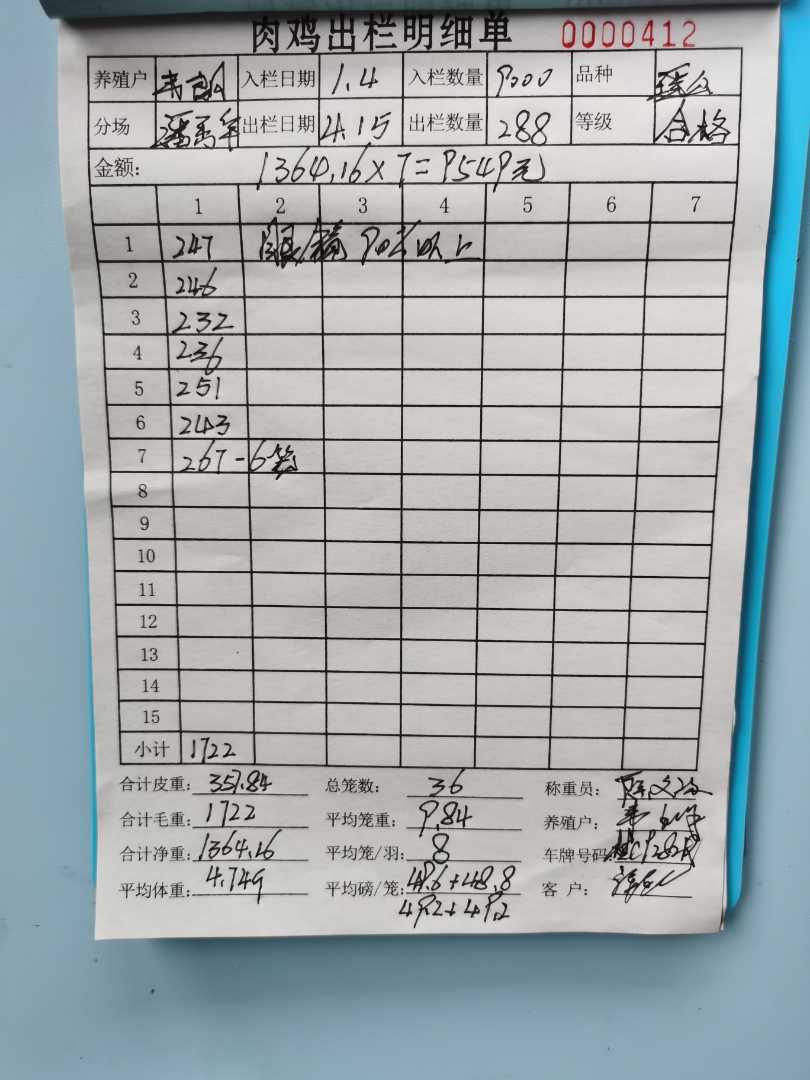 肉鸡出栏明细单 0000412
养殖户 入栏日期 1.4 入栏数量 9000 品种
分场 出栏日期 4.15 出栏数量 288 等级 合格
金额: 1364.16×7=9549元
1 2 3 4 5 6 7
1 247 眼镜 90%以上
2 246
3 232
4 236
5 251
6 243
7 267-6笼
8
9
10
11
12
13
14
15
小计 1722
合计皮重: 357.84 总笼数: 36 称重员:
合计毛重: 1722 平均笼重: 9.84 养殖户:
合计净重: 1364.16 平均笼/羽: 8 车牌号码
平均体重: 4.749 平均磅/笼: 49.6+48.8 客 户:
49.2+49.2